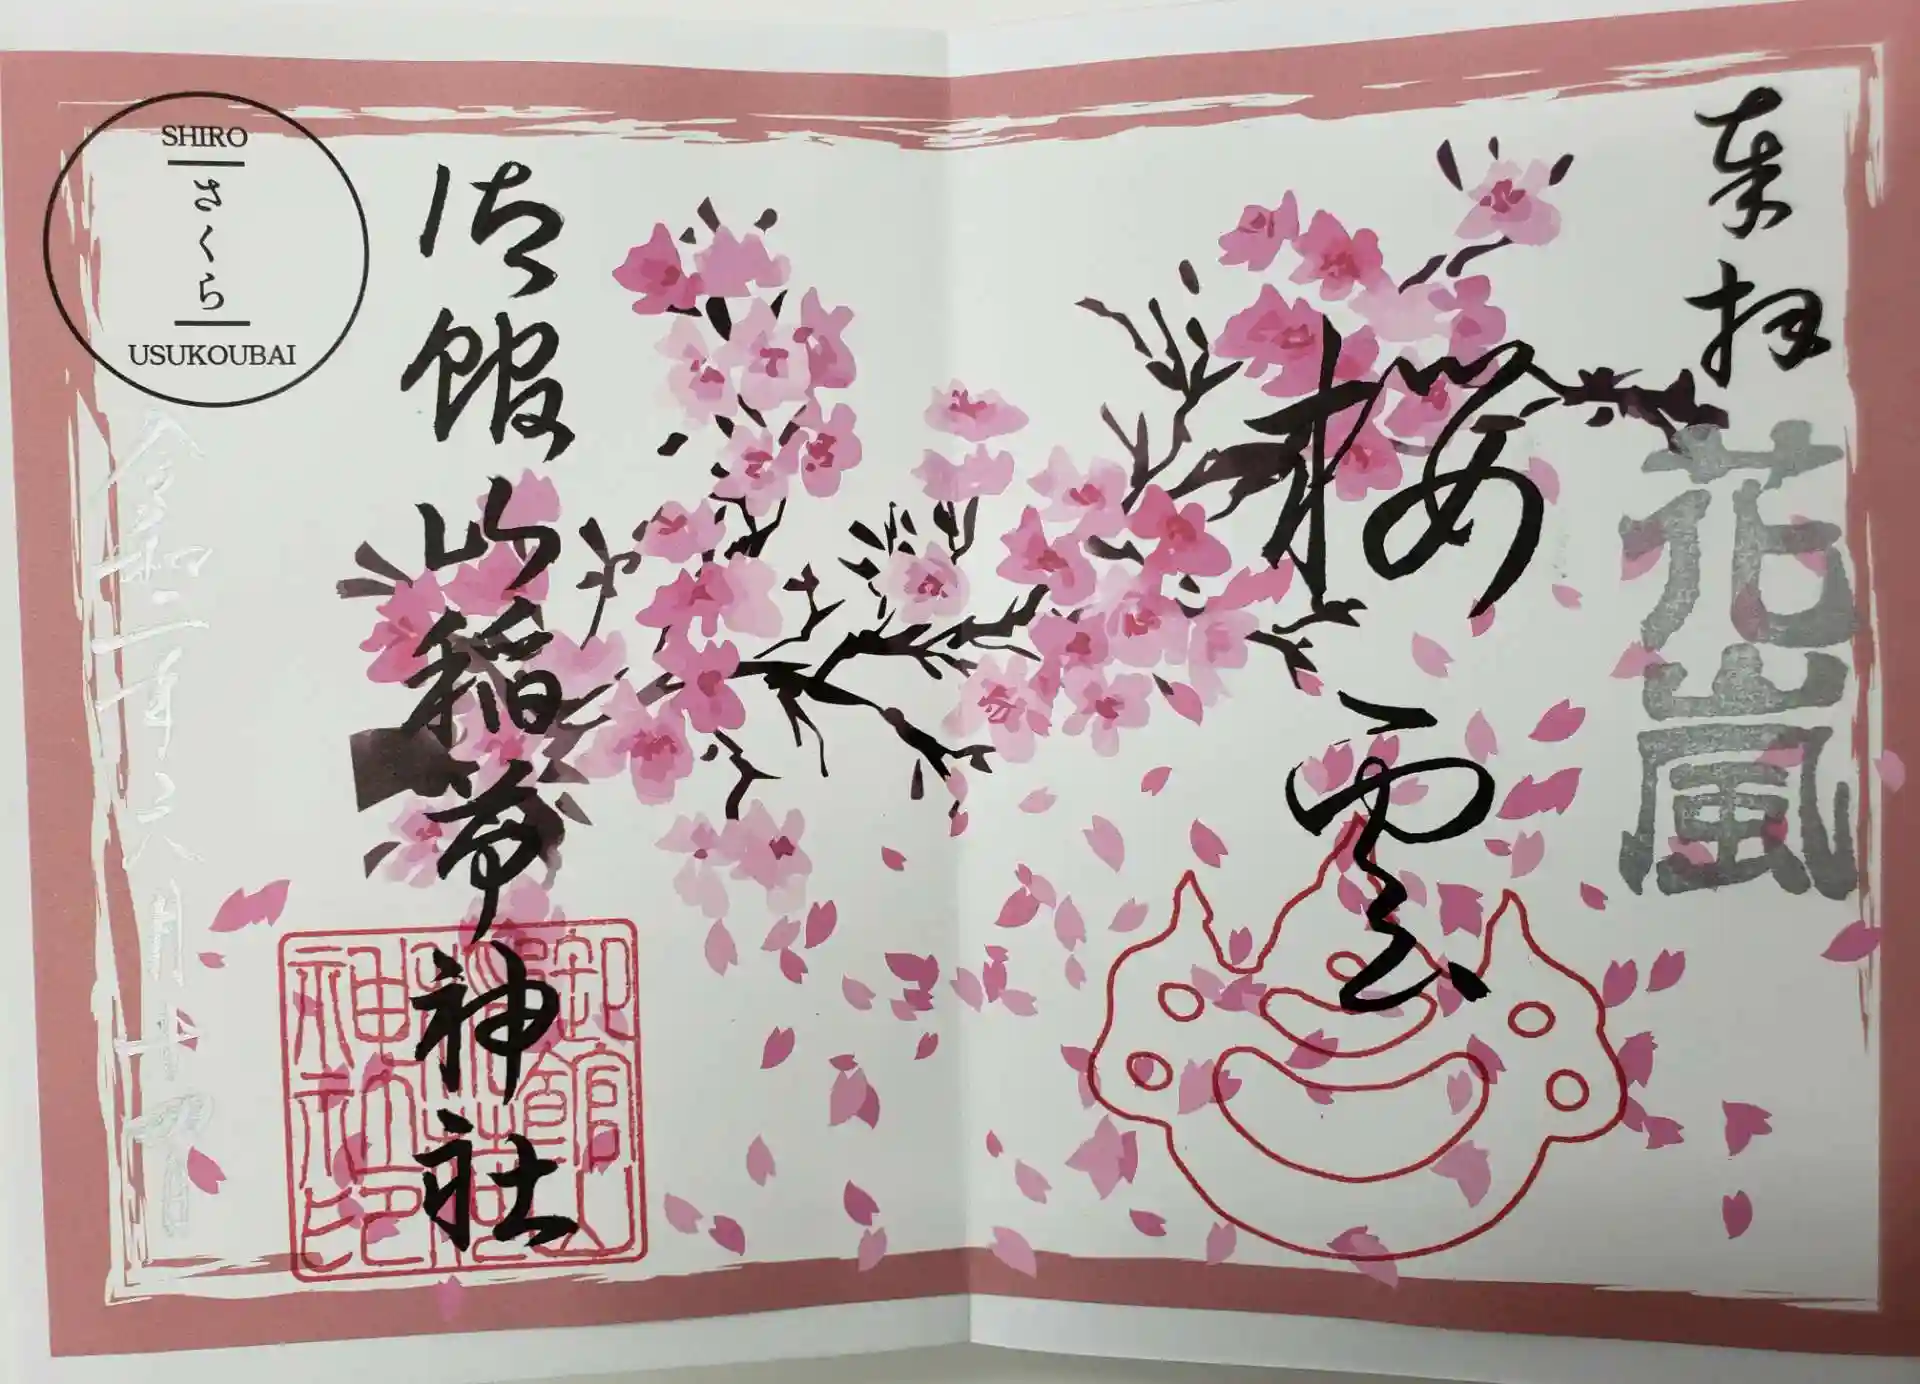 奉拝
花嵐
桜雲
御館山稲荷神社
御館山稲荷神社印
SHIRO
さくら
USUKOUBAI